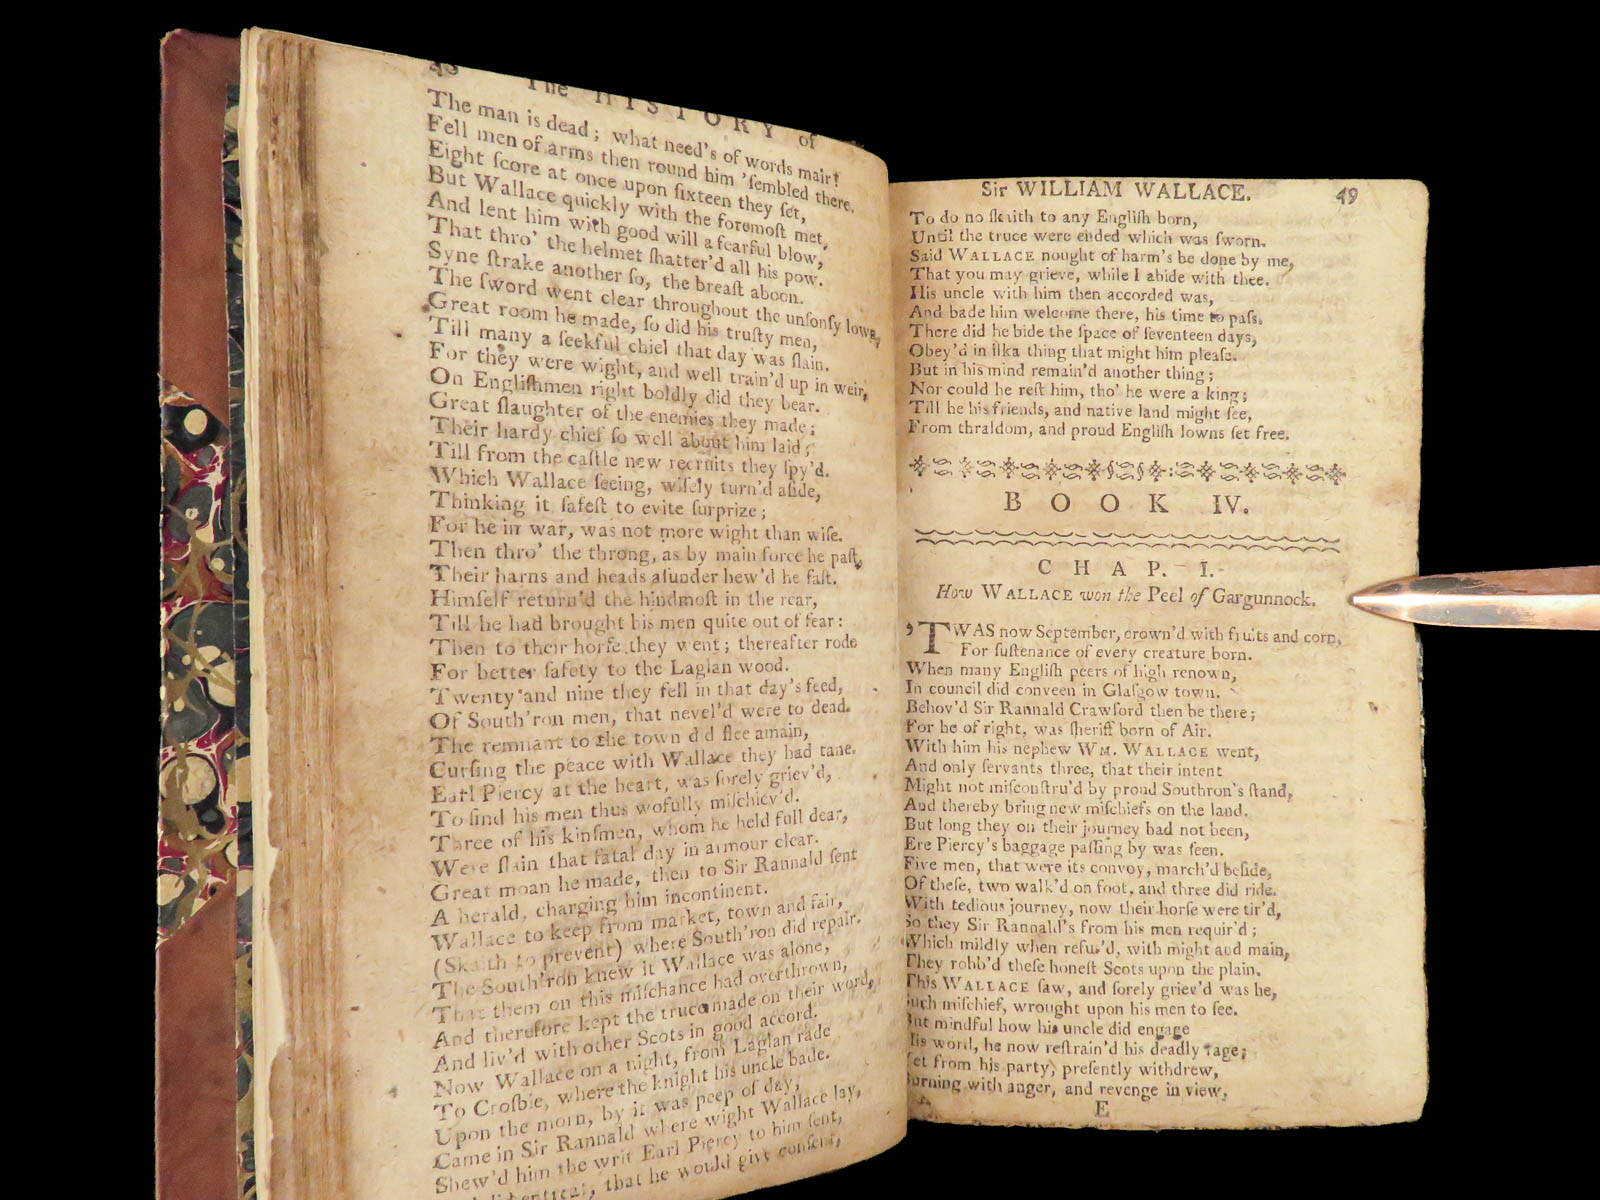 48
The HISTORY of
The man is dead; what need's of words mair!
Fell men of arms then round him 'ſembled there,
Eight ſcore at once upon ſixteen they ſet,
But Wallace quickly with the foremoſt met,
And lent him with good will a fearful blow,
That thro' the helmet ſhatter'd all his pow.
Syne ſtrake another ſo, the breaſt aboon.
The ſword went clear throughout the unſonſy lown,
Great room he made, ſo did his truſty men,
Till many a ſeekful chiel that day was ſlain.
For they were wight, and well train'd up in weir,
On Engliſhmen right boldly did they bear.
Great ſlaughter of the enemies they made;
Their hardy chief ſo well about him laid;
Till from the caſtle new recruits they ſpy'd.
Which Wallace ſeeing, wiſely turn'd aſide,
Thinking it ſafeſt to evite ſurprize;
For he in war, was not more wight than wiſe.
Then thro' the throng, as by main force he paſt,
Their harns and heads aſunder hew'd he faſt.
Himſelf return'd the hindmoſt in the rear,
Till he had brought his men quite out of fear:
Then to their horſe they went; thereafter rode
For better ſafety to the Laglan wood.
Twenty and nine they fell in that day's feed,
Of South'ron men, that nevel'd were to dead.
The remnant to the town did flee amain,
Curſing the peace with Wallace they had tane.
Earl Piercy at the heart, was ſorely griev'd,
To find his men thus wofully miſchiev'd.
Three of his kinſmen, whom he held full dear,
Were ſlain that fatal day in armour clear.
Great moan he made, then to Sir Rannald ſent
A herald, charging him incontinent.
Wallace to keep from market, town and fair,
(Skaith to prevent) where South'ron did repair.
The South'ron knew it Wallace was alone,
That them on this miſchance had overthrown,
And therefore kept the truce made on their word,
And liv'd with other Scots in good accord.
Now Wallace on a night, from Laglan rade
To Croſbie, where the knight his uncle bade.
Upon the morn, by it was peep of day,
Came in Sir Rannald where wight Wallace lay,
Shew'd him the writ Earl Piercy to him ſent,
that he would give conſent,
Sir WILLIAM WALLACE. 49
To do no ſkaith to any Engliſh born,
Until the truce were ended which was ſworn.
Said WALLACE nought of harm's be done by me,
That you may grieve, while I abide with thee.
His uncle with him then accorded was,
And bade him welcome there, his time to paſs.
There did he bide the ſpace of ſeventeen days,
Obey'd in ilka thing that might him pleaſe.
But in his mind remain'd another thing;
Nor could he reſt him, tho' he were a king;
Till he his friends, and native land might ſee,
From thraldom, and proud Engliſh lowns ſet free.
BOOK IV.
CHAP. I.
How WALLACE won the Peel of Gargunnock.
'TWAS now September, crown'd with fruits and corn,
For ſuſtenance of every creature born.
When many Engliſh peers of high renown,
In council did conveen in Glaſgow town.
Behov'd Sir Rannald Crawford then be there;
For he of right, was ſheriff born of Air.
With him his nephew WM. WALLACE went,
And only ſervants three, that their intent
Might not miſconſtru'd by proud Southron's ſtand,
And thereby bring new miſchiefs on the land.
But long they on their journey had not been,
Ere Piercy's baggage paſſing by was ſeen.
Five men, that were its convoy, march'd beſide,
Of theſe, two walk'd on foot, and three did ride.
With tedious journey, now their horſe were tir'd,
So they Sir Rannald's from his men requir'd;
Which mildly when refus'd, with might and main,
They robb'd theſe honeſt Scots upon the plain.
This WALLACE ſaw, and ſorely griev'd was he,
Such miſchief, wrought upon his men to ſee.
But mindful how his uncle did engage
His word, he now reſtrain'd his deadly rage;
Yet from his party, preſently withdrew,
Burning with anger, and revenge in view,
E